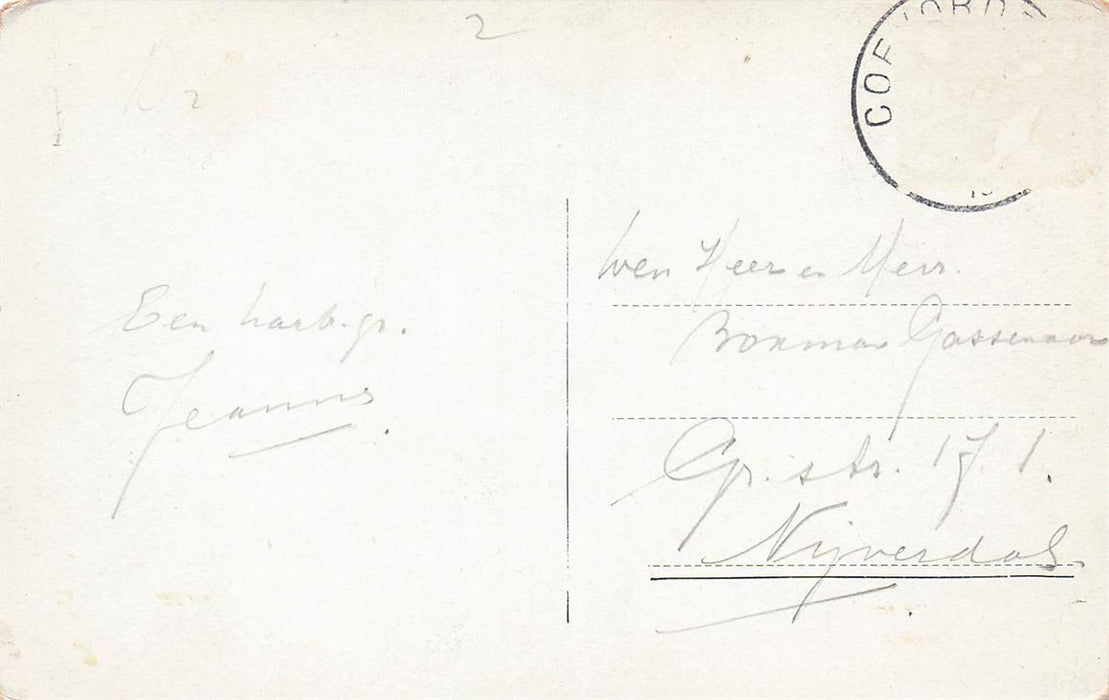 2
COE VORD
Een hart. gr.
Jeanns
Wen Heer en Mevr.
Bonman Gossenaar
Gr. str. 171.
Nijverdal